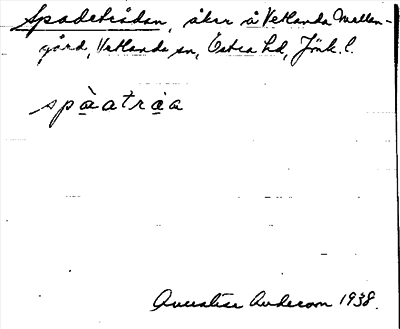 Spadetrådan, åker å Vetlanda Mellan-
gård, Vetlanda sn, Östra hd, Jönk. l.
spàatràa
Anderson 1938.